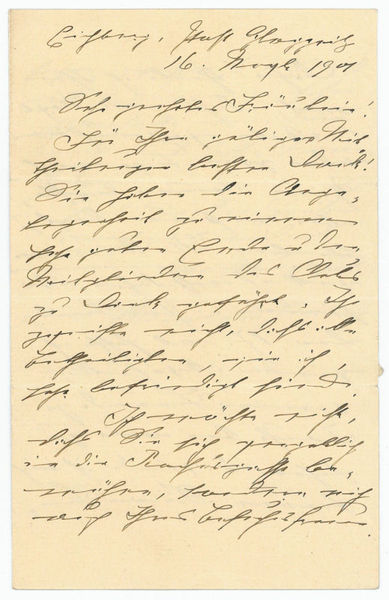 Eichberg, Post Gloggnitz
16. Sept. 1901
Sehr geehrtes Fräulein!
Für Ihre gütigen Mit-
theilungen besten Dank!
Sie haben die Ange-
legenheit zu einem
sehr guten Ende u den
Mitgliedern des Clubs
zu Dank geführt. Ich
zweifle nicht, daß alle
Betheiligten, wie ich,
sehr befriedigt sind.
Ich möchte nicht,
daß Sie sich vergeblich
in die be-
mühen, sondern mich
Ihres